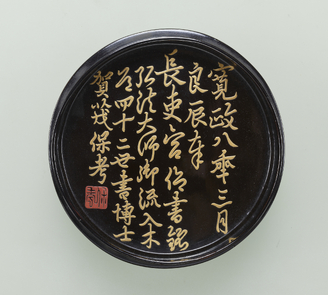 寛政八年三月
良辰奉
長吏宮御書銘
弘法大師御流入木
道四十二世書博士
賀茂保考